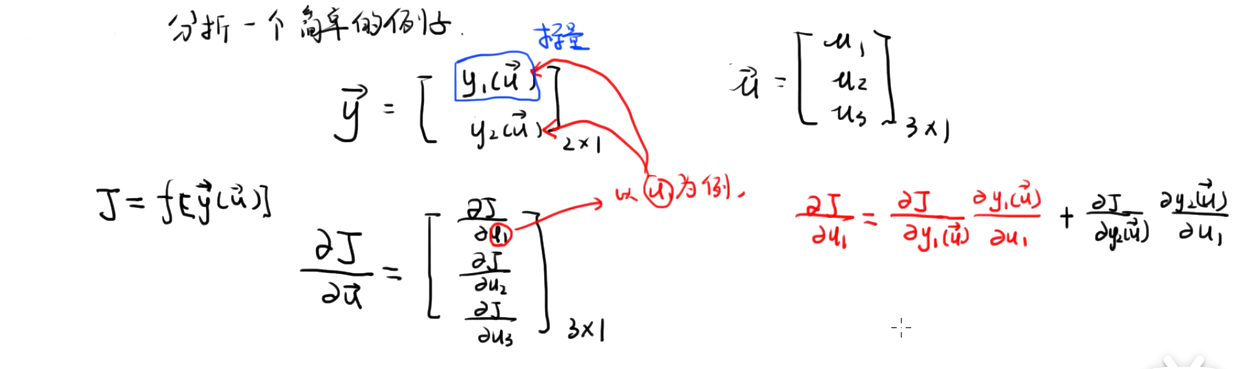 分析一个简单的例子.
标量
y⃗ = [ y₁(u⃗) y₂(u⃗) ]₂ₓ₁
u⃗ = [ u₁ u₂ u₃ ]₃ₓ₁
J = f[y⃗(u⃗)]
∂J/∂u⃗ = [ ∂J/∂u₁ ∂J/∂u₂ ∂J/∂u₃ ]₃ₓ₁
以 u₁ 为例,
∂J/∂u₁ = ∂J/∂y₁(u⃗) ∂y₁(u⃗)/∂u₁ + ∂J/∂y₂(u⃗) ∂y₂(u⃗)/∂u₁